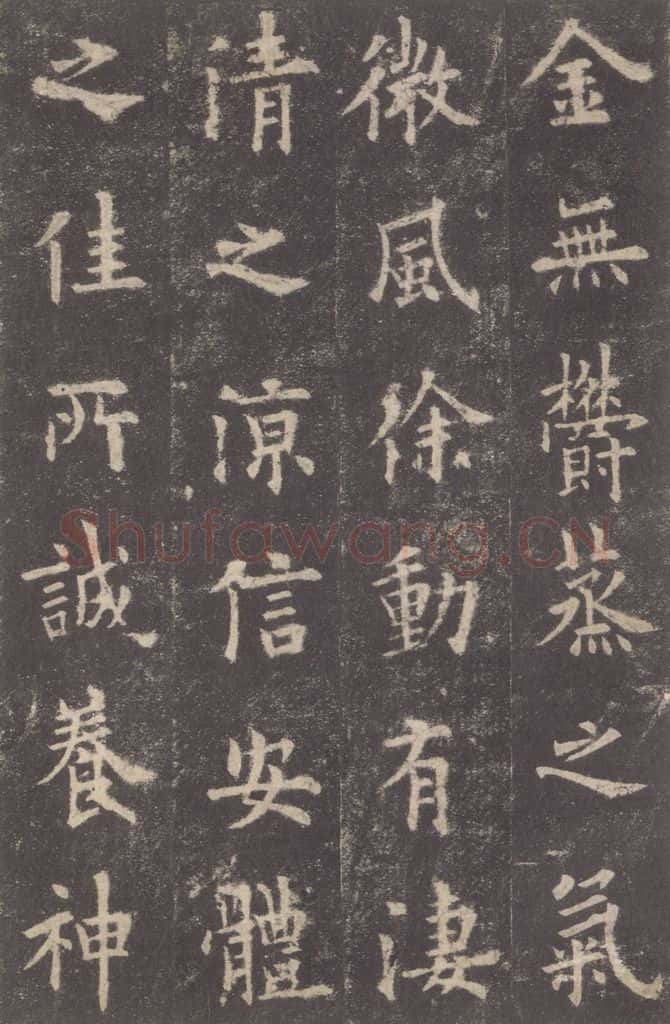 金無欝蒸之氣
微風徐動有淒
清之涼信安體
之佳所誠養神
Shufawang.CN